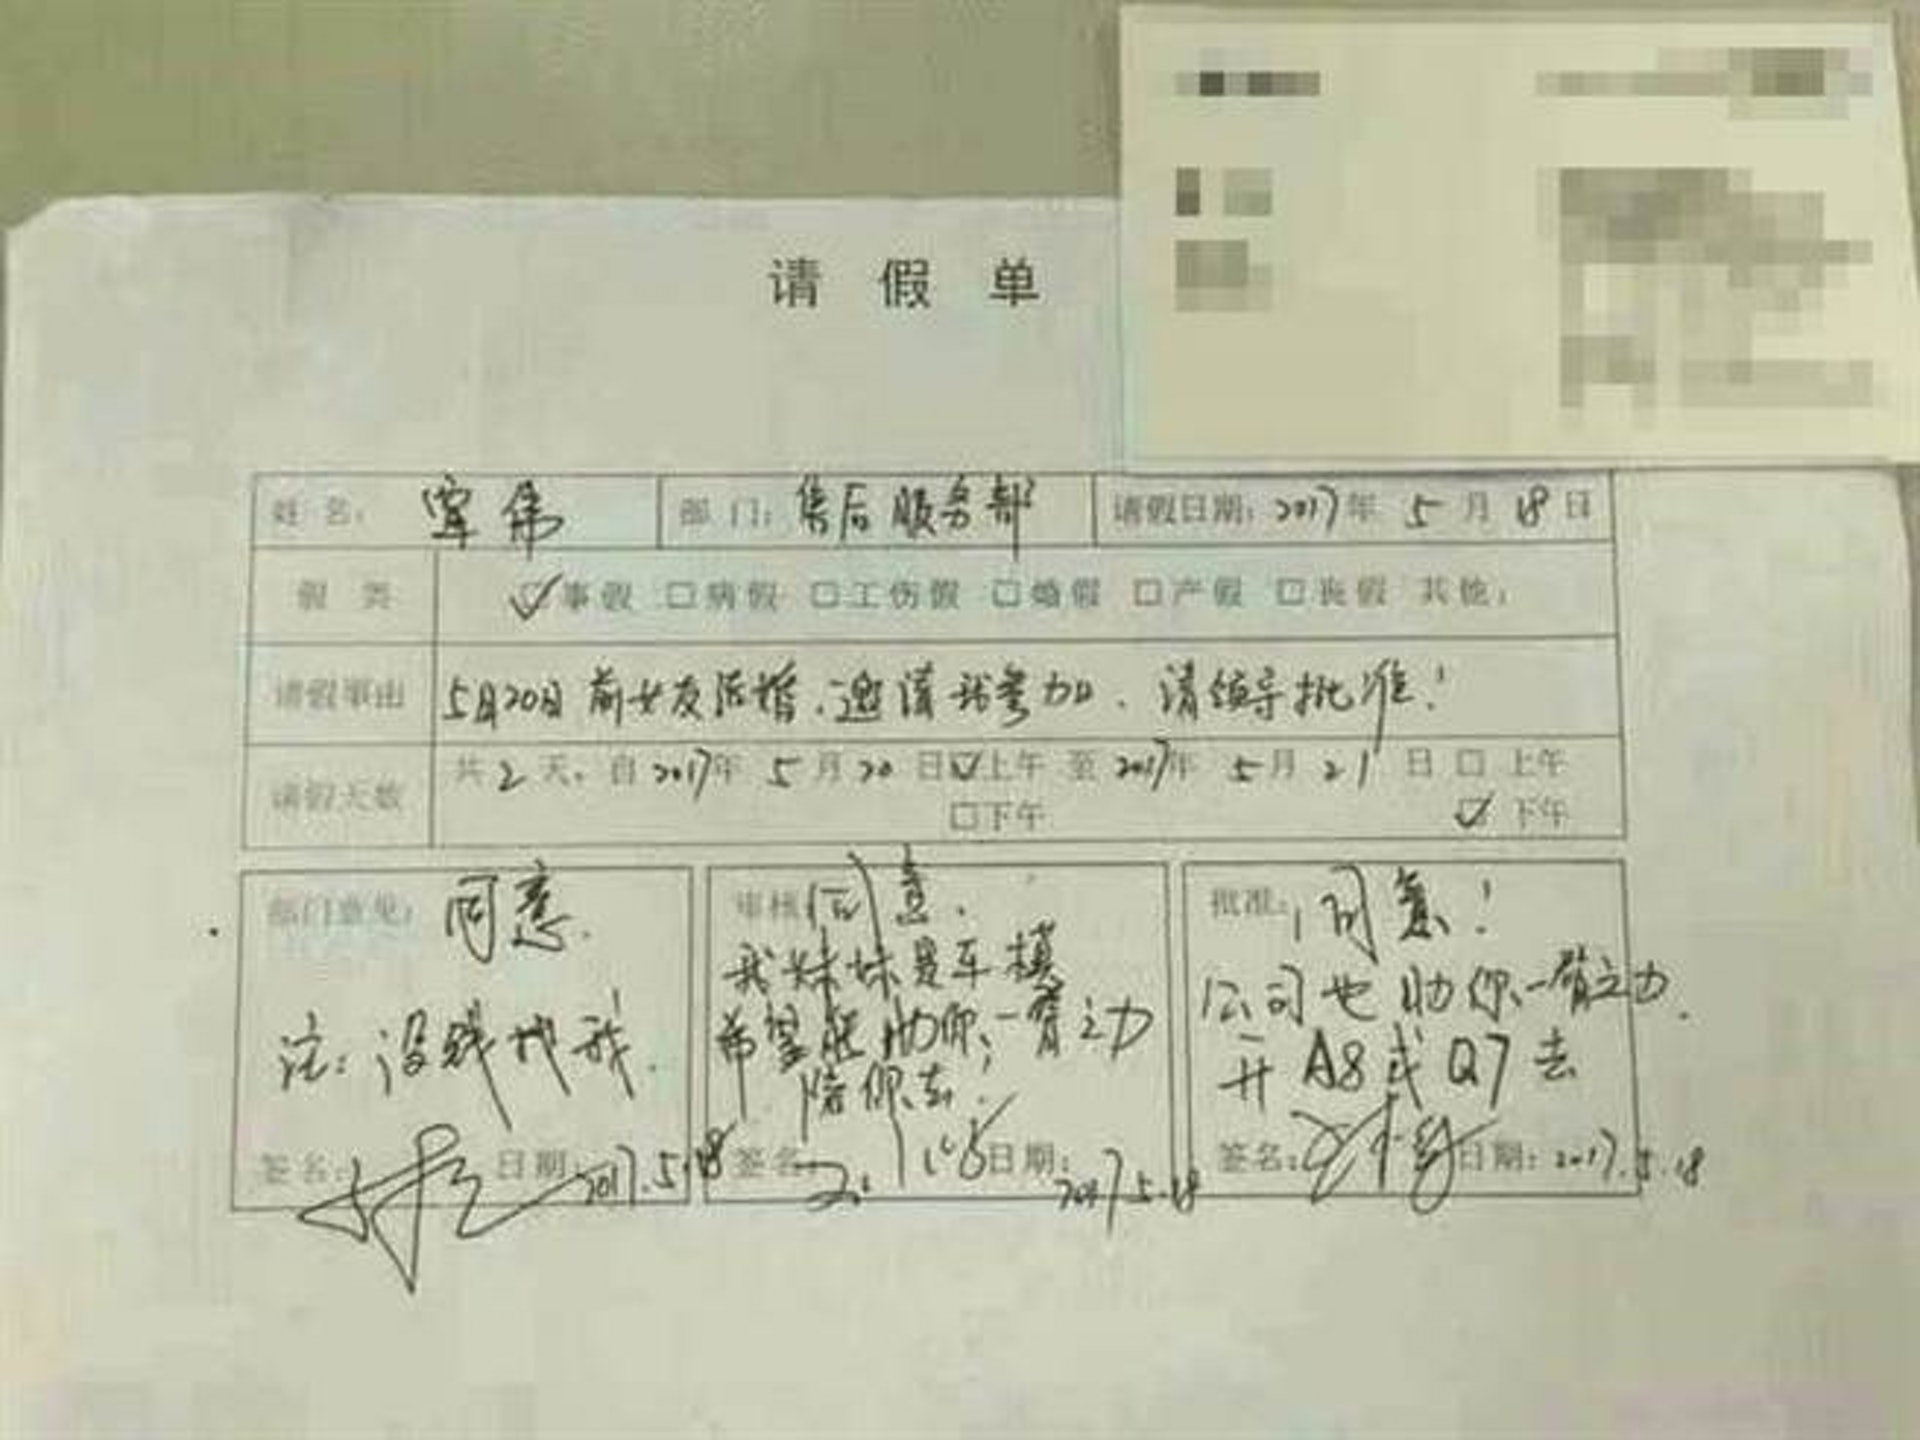 请假单
姓名: 覃伟 部门: 售后服务部 请假日期: 2017年 5月 18日
假类 ☑事假 □病假 □工伤假 □婚假 □产假 □丧假 其他:
请假事由 5月20日前女友结婚.邀请我参加.请领导批准!
请假天数 共2天. 自2017年5月20日☑上午 至2017年5月21日□上午
□下午 ☑下午
部门意见: 同意.
注: 没钱找我.
签名: 日期: 2017.5.18
审核: 同意.
我妹妹是车模
希望能助你一臂之力
陪你去.
签名: 日期: 2017.5.18
批准: 同意!
公司也助你一臂之力.
开A8或Q7去
签名: 日期: 2017.5.18